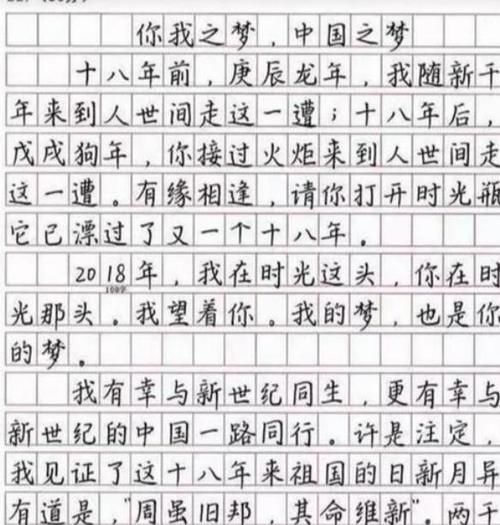 你我之梦，中国之梦
十八年前，庚辰龙年，我随新千
年来到人世间走这一遭；十八年后，
戊戌狗年，你接过火炬来到人世间走
这一遭。有缘相逢，请你打开时光瓶
它已漂过了又一个十八年。
2018年，我在时光这头，你在时
100字
光那头。我望着你。我的梦，也是你
的梦。
我有幸与新世纪同生，更有幸与
新世纪的中国一路同行。许是注定，
我见证了这十八年来祖国的日新月异
有道是，"周虽旧邦，其命维新"。两千